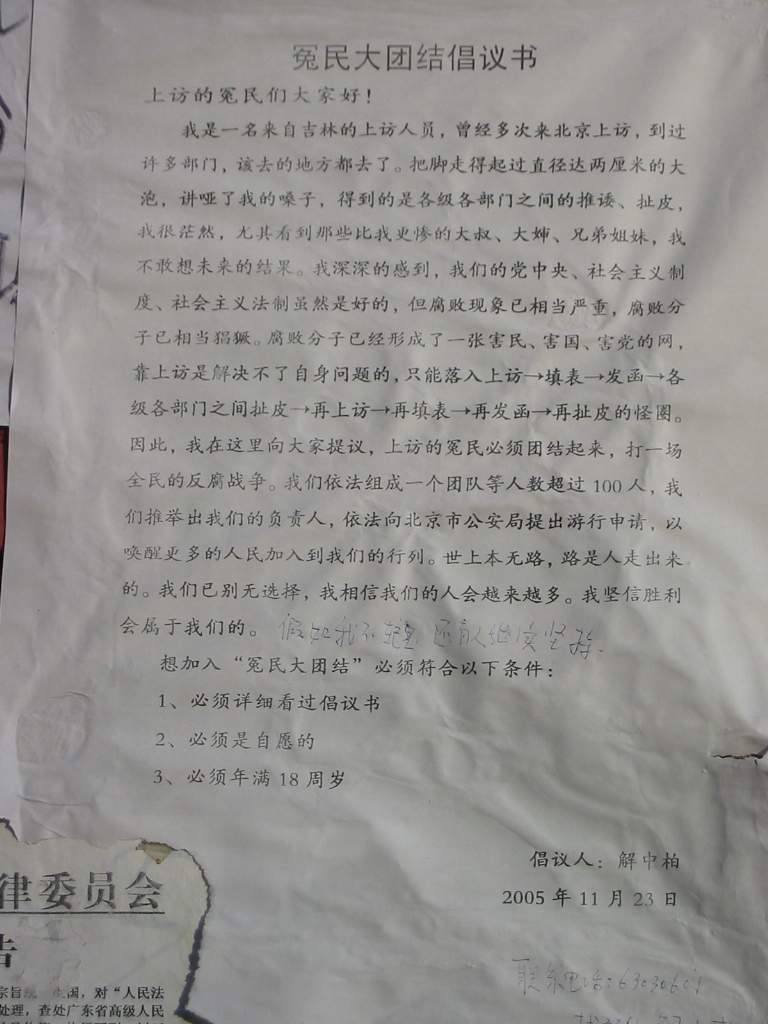 冤民大团结倡议书
上访的冤民们大家好！
我是一名来自吉林的上访人员，曾经多次来北京上访，到过
许多部门，该去的地方都去了。把脚走得起过直径达两厘米的大
泡，讲哑了我的嗓子，得到的是各级各部门之间的推诿、扯皮，
我很茫然，尤其看到那些比我更惨的大叔、大婶、兄弟姐妹，我
不敢想未来的结果。我深深的感到，我们的党中央、社会主义制
度、社会主义法制虽然是好的，但腐败现象已相当严重，腐败分
子已相当猖獗。腐败分子已经形成了一张害民、害国、害党的网，
靠上访是解决不了自身问题的，只能落入上访→填表→发函→各
级各部门之间扯皮→再上访→再填表→再发函→再扯皮的怪圈。
因此，我在这里向大家提议，上访的冤民必须团结起来，打一场
全民的反腐战争。我们依法组成一个团队等人数超过 100 人，我
们推举出我们的负责人，依法向北京市公安局提出游行申请，以
唤醒更多的人民加入到我们的行列。世上本无路，路是人走出来
的。我们已别无选择，我相信我们的人会越来越多。我坚信胜利
会属于我们的。假如我不 还有人继续坚持.
想加入“冤民大团结”必须符合以下条件：
1、必须详细看过倡议书
2、必须是自愿的
3、必须年满 18 周岁
倡议人：解中柏
2005 年 11 月 23 日
联系电话:
律委员会
告
国，对“人民法
处理，查处广东省高级人民